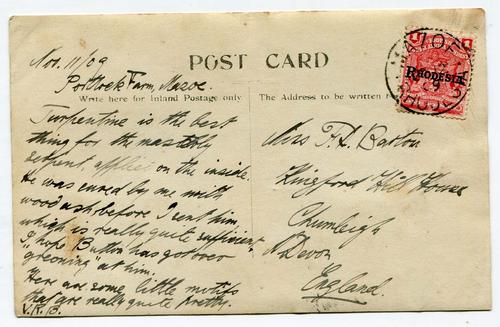 Nov. 11/09
POST CARD
Farm, Mazoe.
Write here for Inland Postage only
The Address to be written
Turpentine is the best
thing for the
serpent, applied on the inside.
He was cured by me with
wood ash before I sent him
which is really quite sufficient.
I hope Button has got over
"groening" at him.
Here are some little motifs
that are really quite pretty.
V.R.B.
Mrs F. H. Barton
Kingford Hill House
Chumleigh
N Devon
England.
MAZOE
RHODESIA